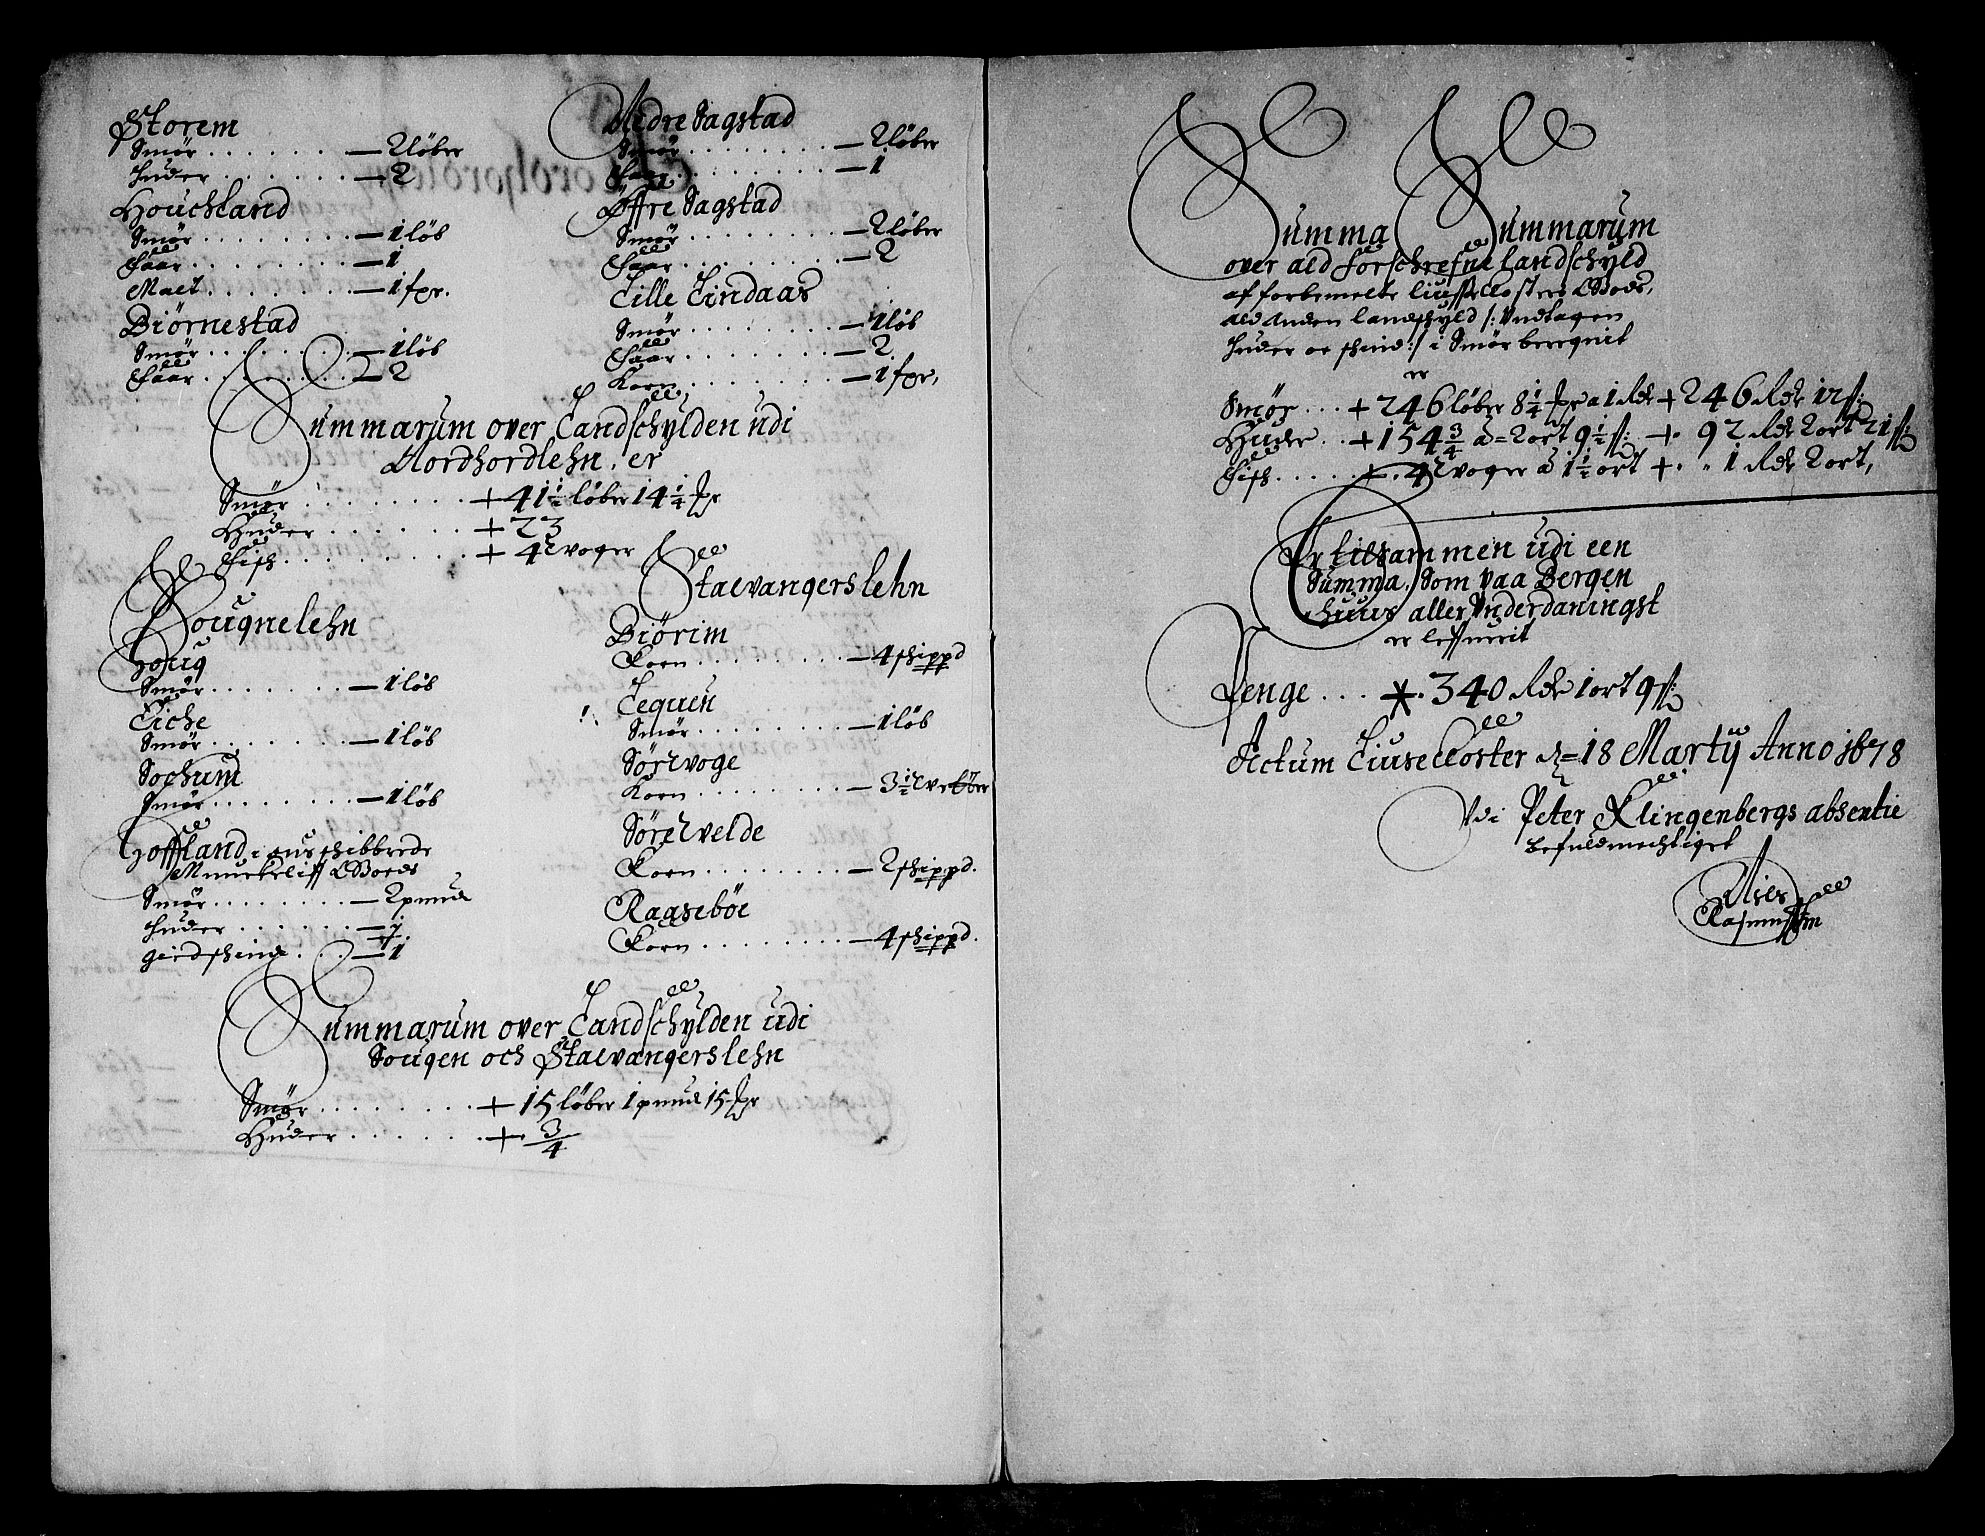 Storem
Smör . . . . . . . — 2 löber
Huder . . . . . . — 2
Houchland
Smör . . . . . . . — 1 löb
Faar . . . . . . . — 1
Malt . . . . . . . — 1 spr.
Biörnestad
Smör . . . . . . . — 1 löb
Faar . . . . . . . — 2
Nedre Sagstad
Smör . . . . . . . — 2 löber
Faar . . . . . . . — 1
Öffre Sagstad
Smör . . . . . . . — 2 löber
Faar . . . . . . . — 2
Lille Lindaas
Smör . . . . . . . — 1 löb
Faar . . . . . . . — 2
Korn . . . . . . . — 1 spr,
Summarum over Landschylden udi
Nordhordlehn, er
Smör . . . . . . . + 41½ löber 14¼ pr
Huder . . . . . . . + 23
Fisk . . . . . . . + 4 woger
Sougnelehn
Houg
Smör . . . . . . . — 1 löb
Eiche
Smör . . . . . . . — 1 löb
Sochum
Smör . . . . . . . — 1 löb
Hoffland i
Munckeliff Goeds
Smör . . . . . . . — 2 pmud
Huder . . . . . . .
giedskind . . . — 1
Staevangerslehn
Biörim
Korn . . . . . . . — 4 schippd
Lequen
Smör . . . . . . . — 1 löb
Sörwoge
Korn . . . . . . . — 3½ wetter
Sörewelde
Korn . . . . . . . — 2 schippd.
Raagseböe
Korn . . . . . . . — 4 schippd.
Summarum over Landschylden udi
Sougen och Staevangerslehn
Smör . . . . . . . + 15 löber 1 pmud 15 pr
Huder . . . . . . . + 3/4
Summa Summarum
over ald forschrefne Landschyld
af forbemelte Liusse Closters Goeds,
ald anden landschyld /: Undtagen
Huder oc skind :/ i Smör beregnit
er
Smör . . . + 246 löber 8¼ pr a 1 Rdr + 246 Rdr 12 ß:
Huder . . + 154¾ a = 2 ort 9½ ß: +. 92 Rdr 2 ort 21 ß:
Fisk . . . . . +. 4 woger a 1½ ort +. . 1 Rdr 2 ort,
Er tilsammen udi een
Summa. Som paa Bergen
huus aller Underdaningst
er lefuerit
Penge . . . . 340 Rdr 1 ort 9 ß:
Actum Liuse Closter d = 18 Martij Anno 1678
Udi Peter Klingenbergs absentie
befuldmechtiget
Niels
Rasmussen